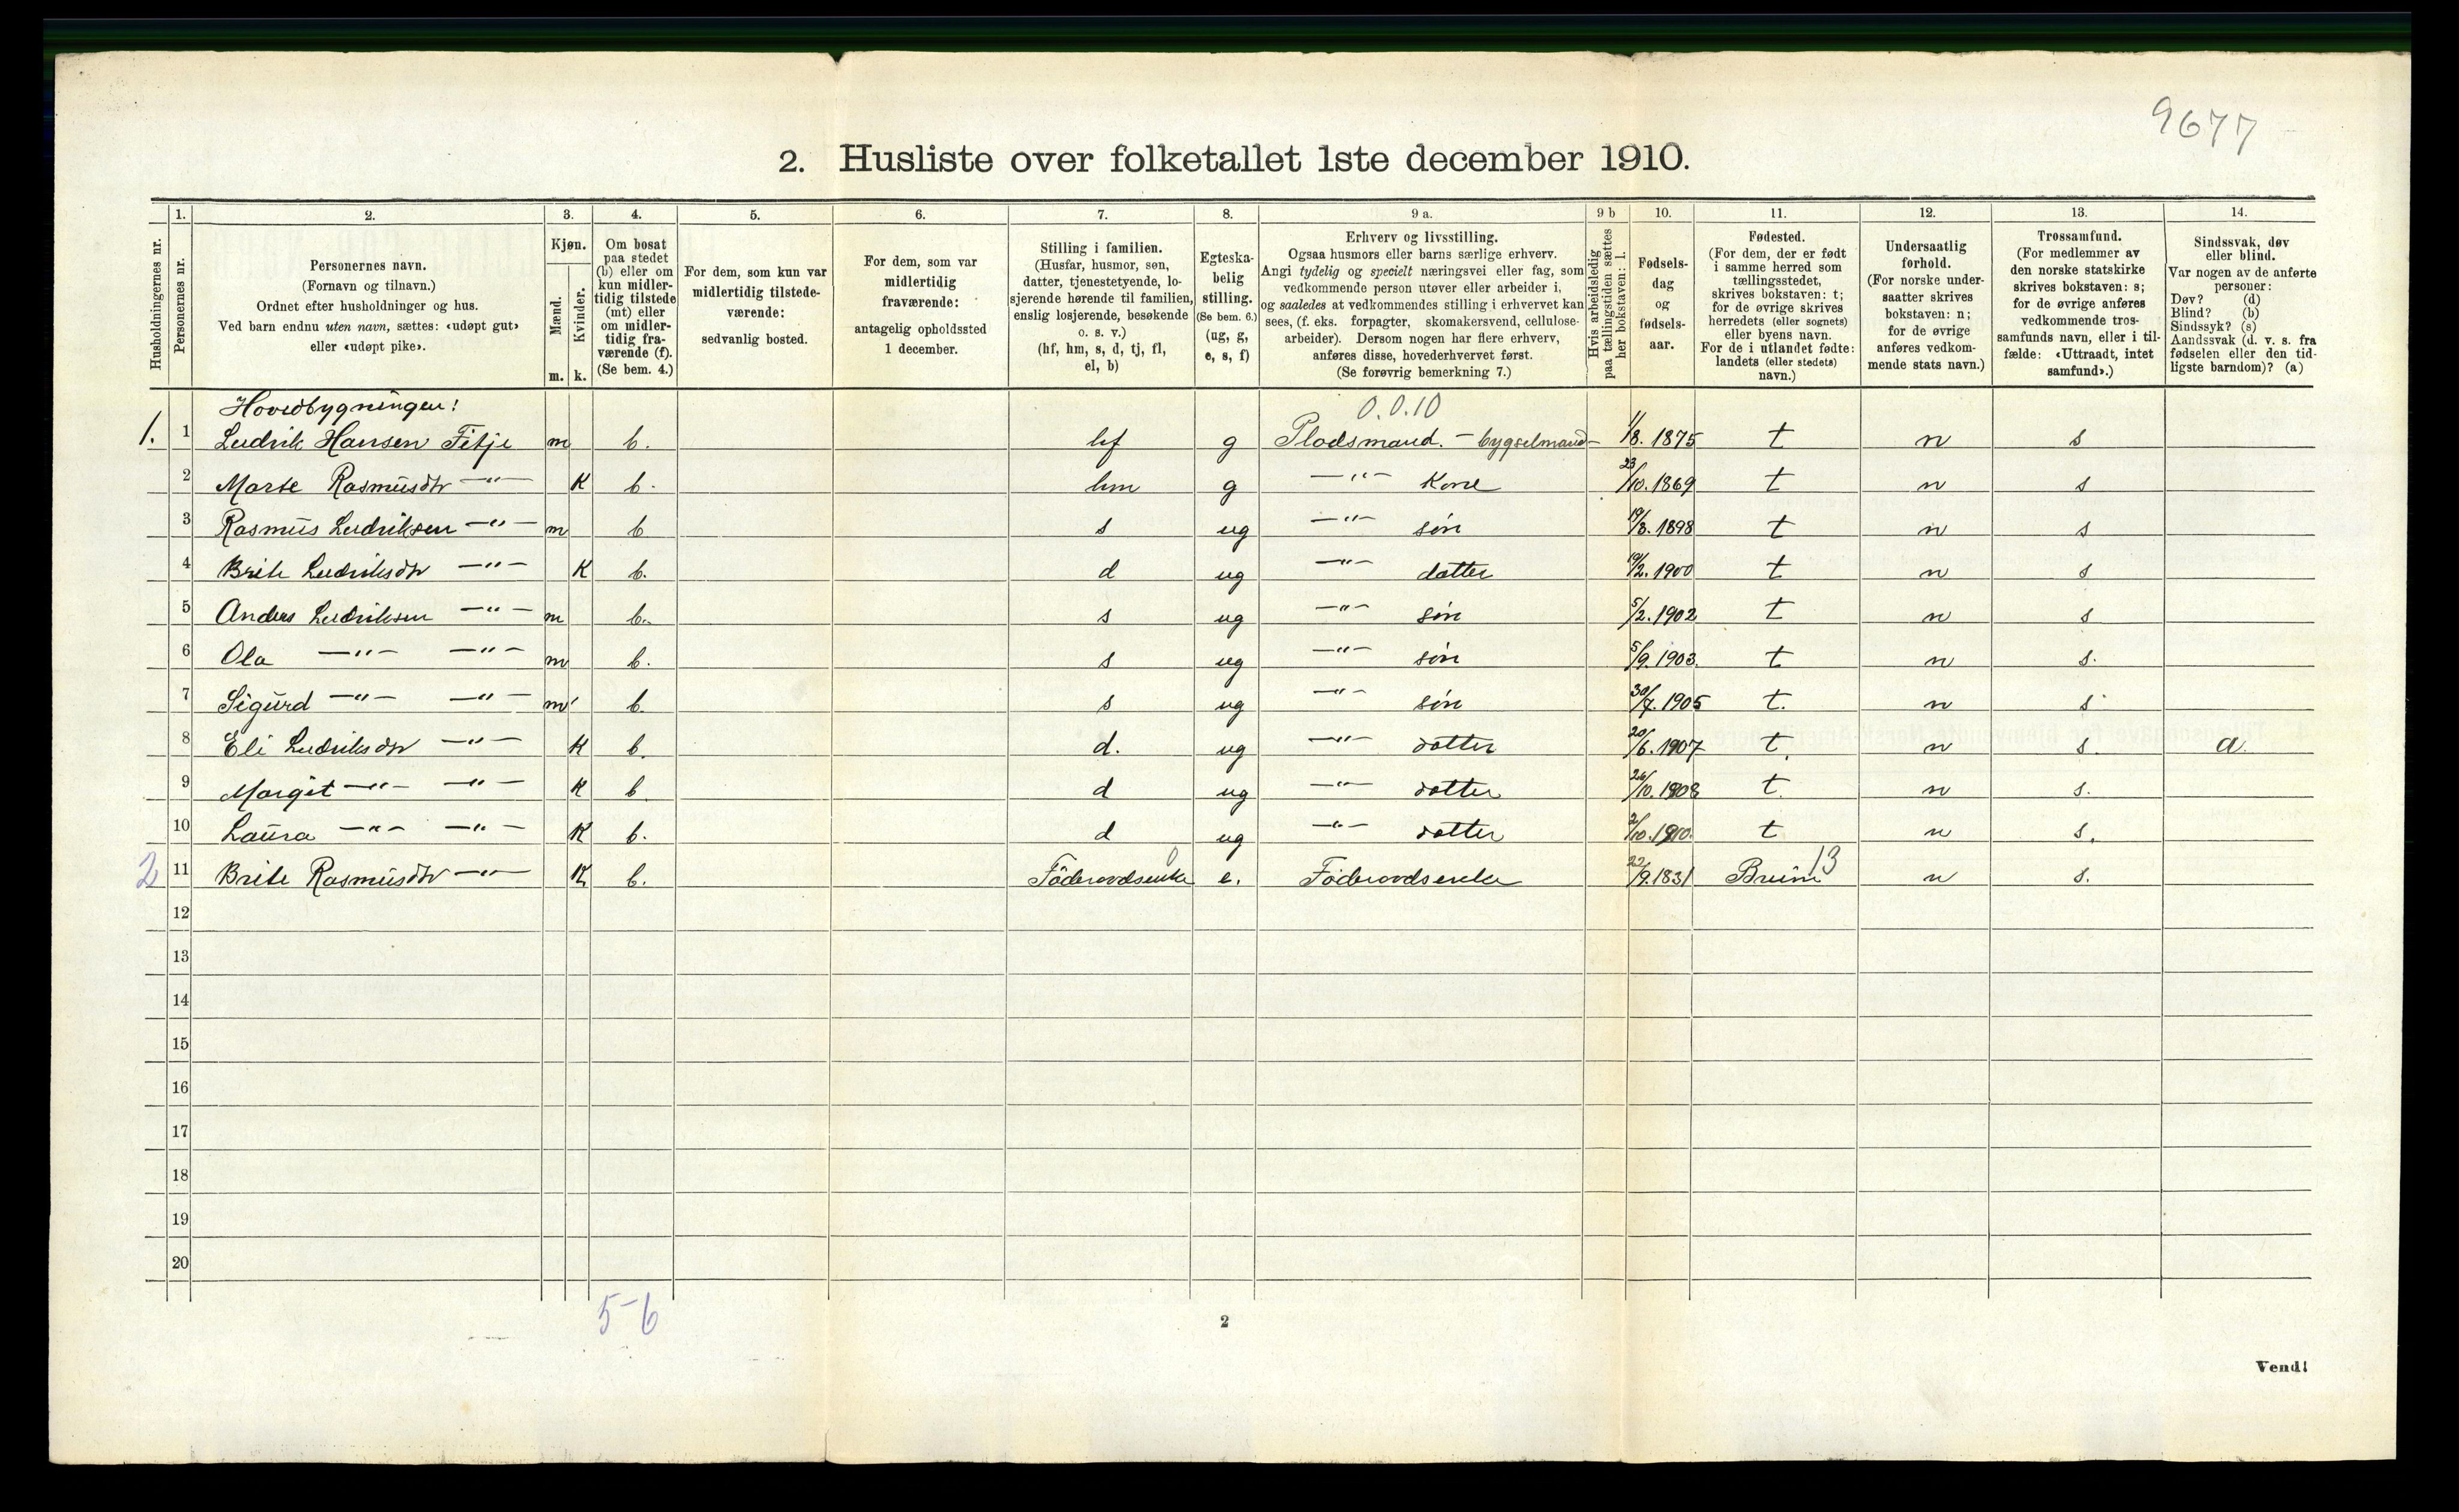 9677
2. Husliste over folketallet 1ste december 1910.
Husholdningernes nr.
1. Personernes nr.
2. Personernes navn.
(Fornavn og tilnavn.)
Ordnet efter husholdninger og hus.
Ved barn endnu uten navn, sættes: «udøpt gut»
eller «udøpt pike».
3. Kjøn.
Mænd. m.
Kvinder. k.
4. Om bosat
paa stedet
(b) eller om
kun midler-
tidig tilstede
(mt) eller
om midler-
tidig fra-
værende (f).
(Se bem. 4.)
5. For dem, som kun var
midlertidig tilstede-
værende:
sedvanlig bosted.
6. For dem, som var
midlertidig
fraværende:
antagelig opholdssted
1 december.
7. Stilling i familien.
(Husfar, husmor, søn,
datter, tjenestetyende, lo-
sjerende hørende til familien,
enslig losjerende, besøkende
o. s. v.)
(hf, hm, s, d, tj, fl,
el, b)
8. Egteska-
belig
stilling.
(Se bem. 6.)
(ug, g,
e, s, f)
9 a. Erhverv og livsstilling.
Ogsaa husmors eller barns særlige erhverv.
Angi tydelig og specielt næringsvei eller fag, som
vedkommende person utøver eller arbeider i,
og saaledes at vedkommendes stilling i erhvervet kan
sees, (f. eks. forpagter, skomakersvend, cellulose-
arbeider). Dersom nogen har flere erhverv,
anføres disse, hovederhvervet først.
(Se forøvrig bemerkning 7.)
9 b Hvis arbeidsledig
paa tællingstiden sættes
her bokstaven: l.
10. Fødsels-
dag
og
fødsels-
aar.
11. Fødested.
(For dem, der er født
i samme herred som
tællingsstedet,
skrives bokstaven: t;
for de øvrige skrives
herredets (eller sognets)
eller byens navn.
For de i utlandet fødte:
landets (eller stedets)
navn.)
12. Undersaatlig
forhold.
(For norske under-
saatter skrives
bokstaven: n;
for de øvrige
anføres vedkom-
mende stats navn.)
13. Trossamfund.
(For medlemmer av
den norske statskirke
skrives bokstaven: s;
for de øvrige anføres
vedkommende tros-
samfunds navn, eller i til-
fælde: «Uttraadt, intet
samfund».)
14. Sindssvak, døv
eller blind.
Var nogen av de anførte
personer:
Døv? (d)
Blind? (b)
Sindssyk? (s)
Aandssvak (d. v. s. fra
fødselen eller den tid-
ligste barndom)? (a)
Hovedbygningen! 0.0.10
1. 1 Ludvik Hansen Fitje m b. hf g Pladsmand. – bygselmand – 1/8. 1875 t n s
2 Marte Rasmusdtr —"— K b. hm g —"— Kone 23/10. 1869 t n s
3 Rasmus Ludviksen —"— m b s ug —"— søn 19/3. 1898 t n s
4 Brite Ludviksdtr —"— K b. d ug —"— datter 19/2. 1900 t n s
5 Anders Ludviksen —"— m b. s ug —"— søn 5/2. 1902 t n s
6 Ola —"— —"— m b. s ug —"— søn 5/9. 1903. t n s.
7 Sigurd —"— —"— m b. s ug —"— søn 30/7. 1905 t. n s
8 Eli Ludviksdtr —"— K b. d. ug —"— datter 20/6. 1907 t. n s. a.
9 Margit —"— —"— K b d ug —"— datter 26/10. 1908 t. n s.
10 Laura —"— —"— K b. d ug —"— datter 2/10. 1910. t n s.
2 11 Brite Rasmusdtr —"— K b. Föderaadsenke 0 e. Föderaadsenke 22/9. 1831 Breim 13 n s.
12
13
14
15
16
17
18
19
20
5-6
2
Vend!